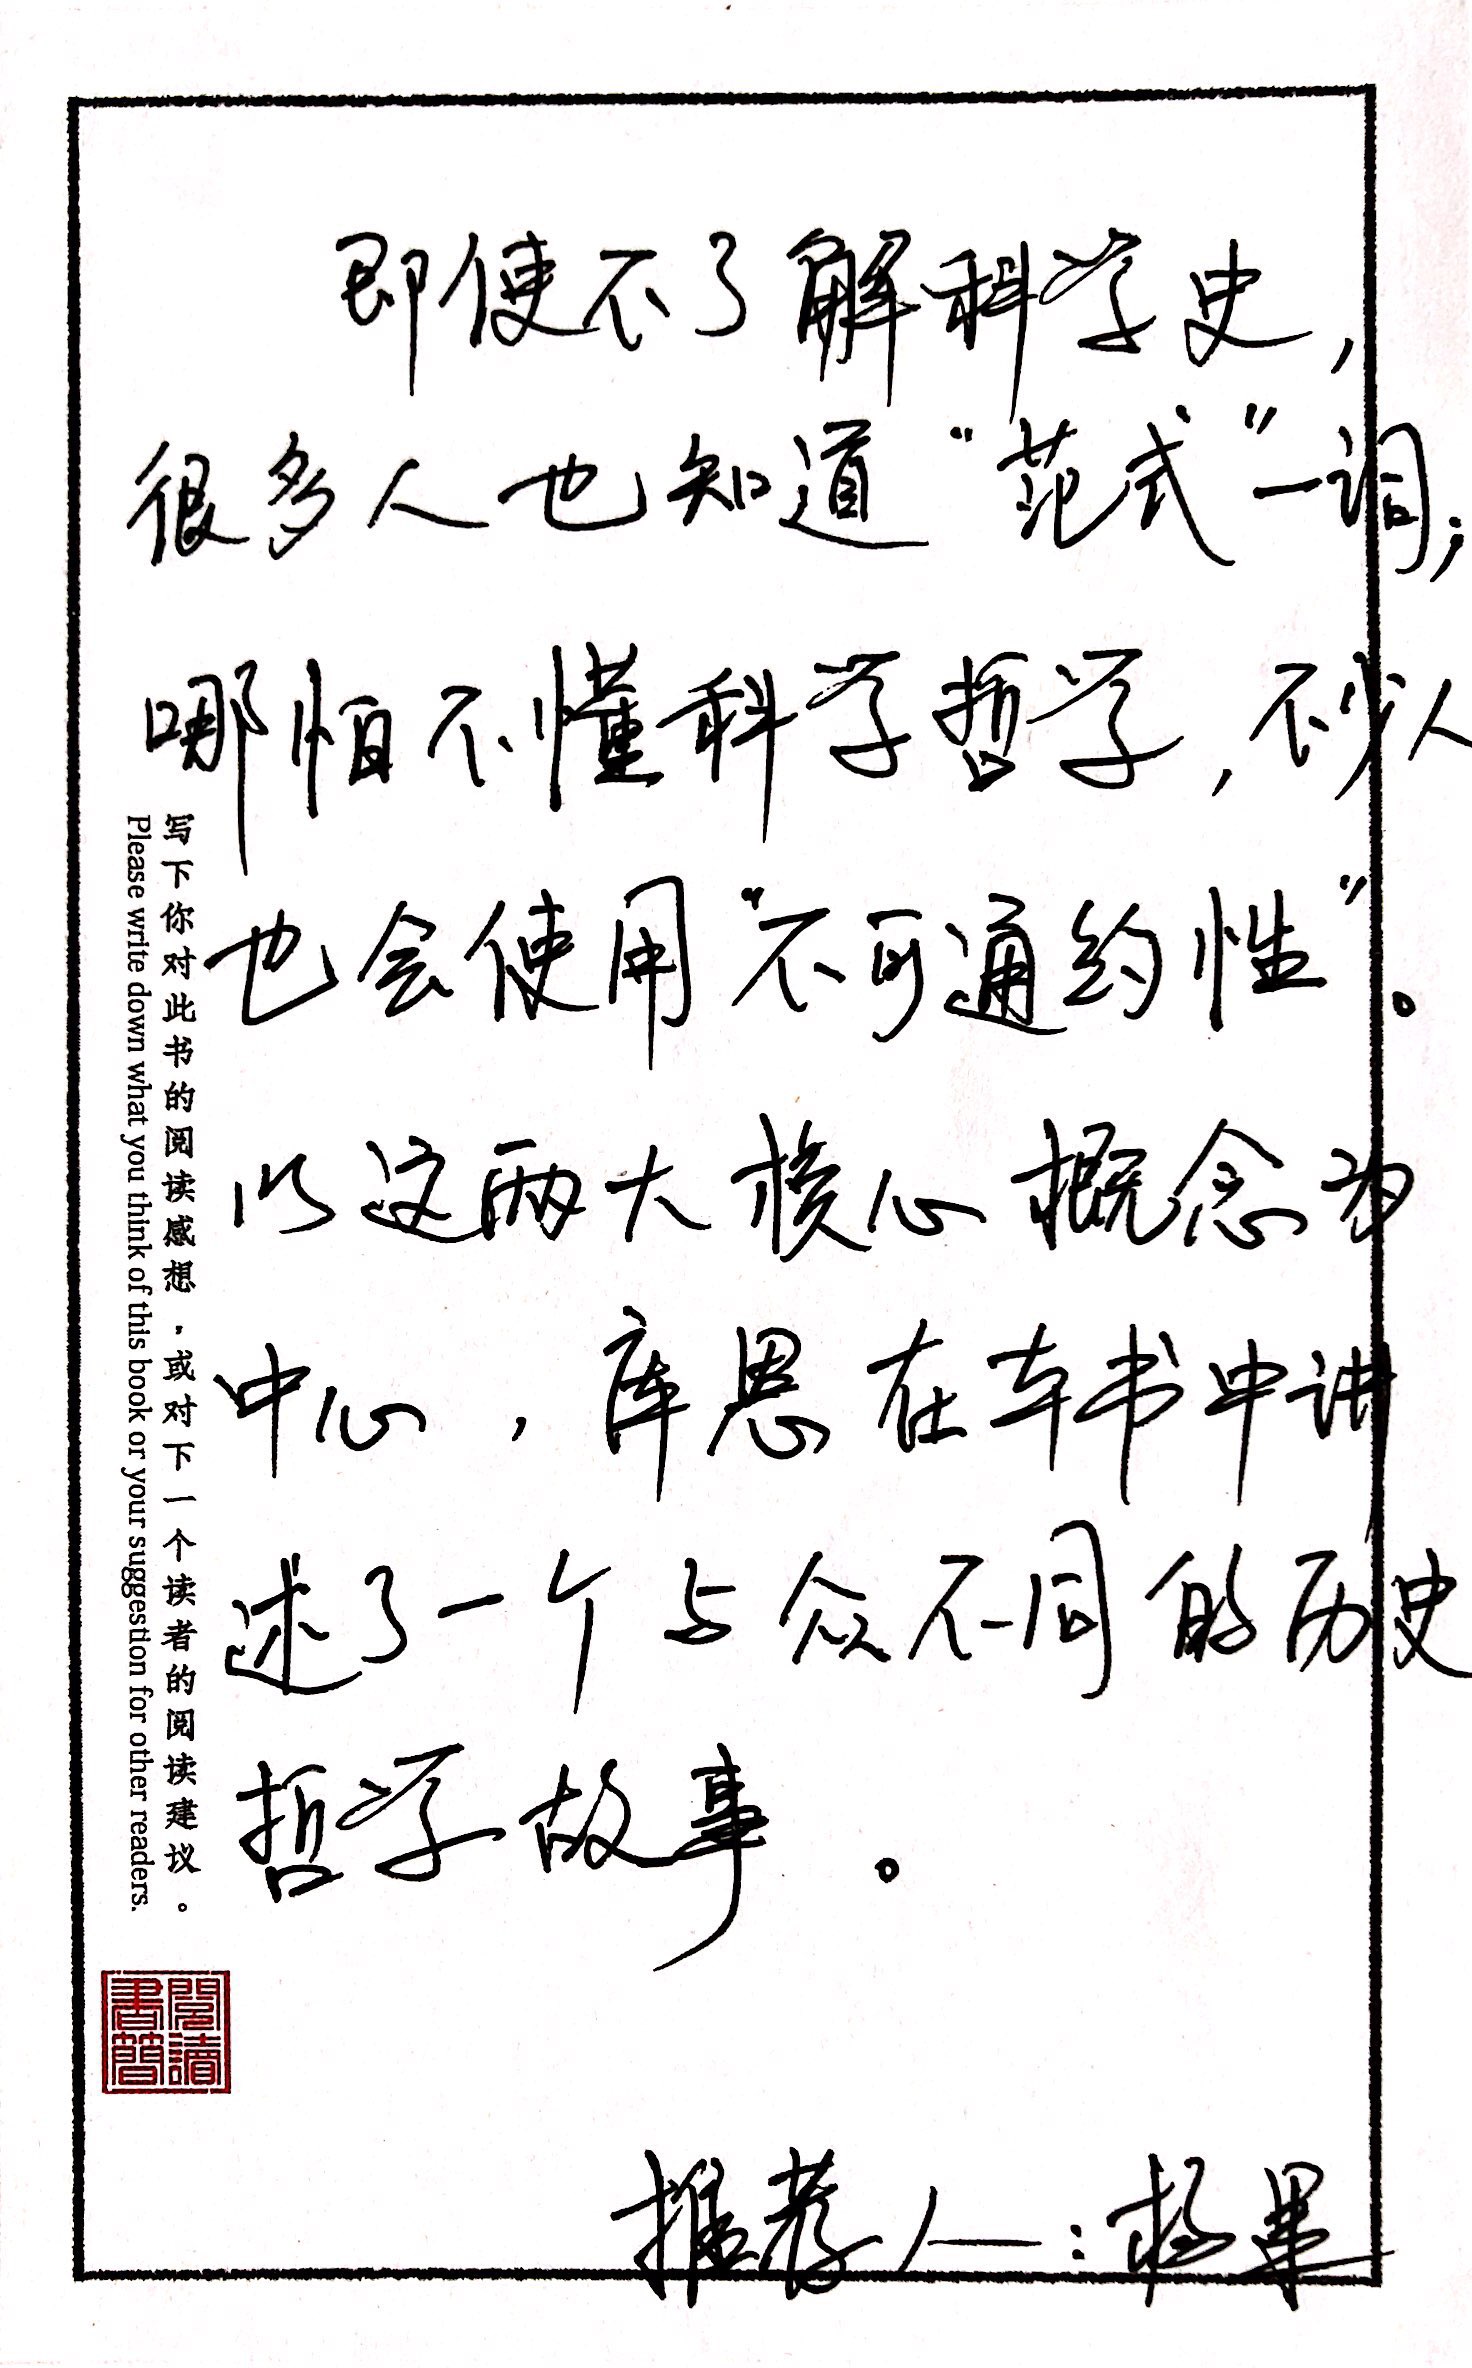 即使不了解科学史，
很多人也知道“范式”一词；
哪怕不懂科学哲学，不少人
也会使用“不可通约性”。
以这两大核心概念为
中心，库恩在本书中讲
述了一个与众不同的历史
哲学故事。
推荐人：杨果
写下你对此书的阅读感想，或对下一个读者的阅读建议。
Please write down what you think of this book or your suggestion for other readers.
閱讀
書簡